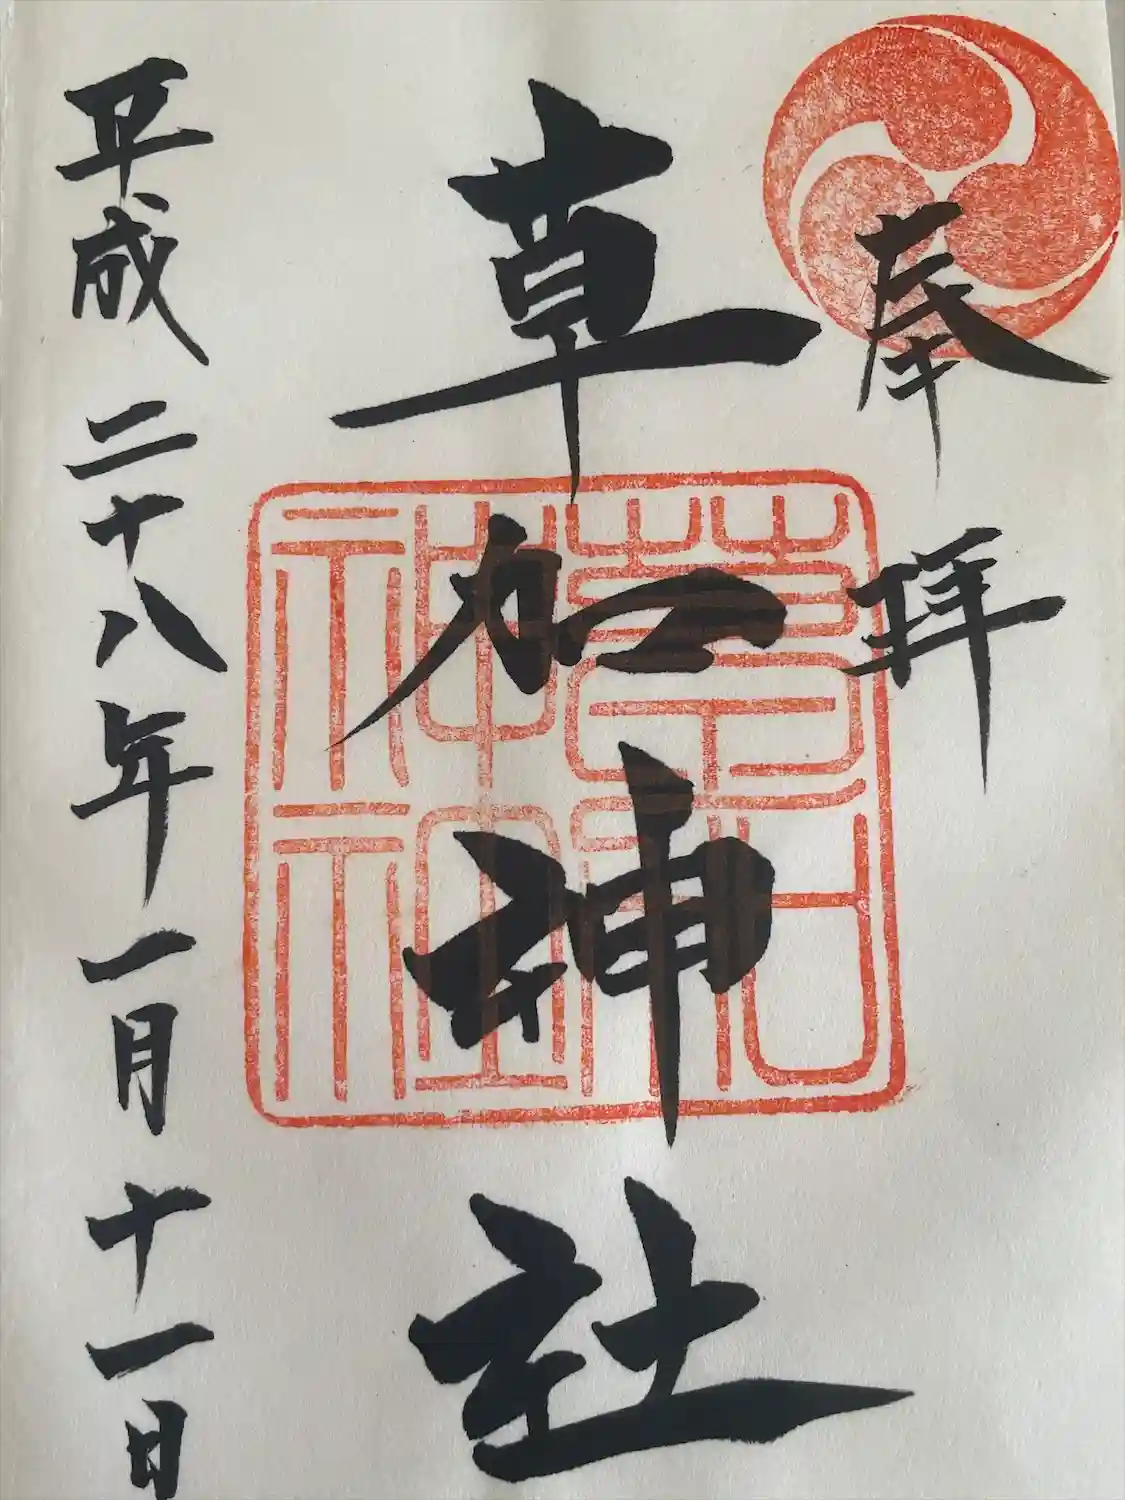 奉拝
草加神社
草加神社
平成二十八年一月十一日